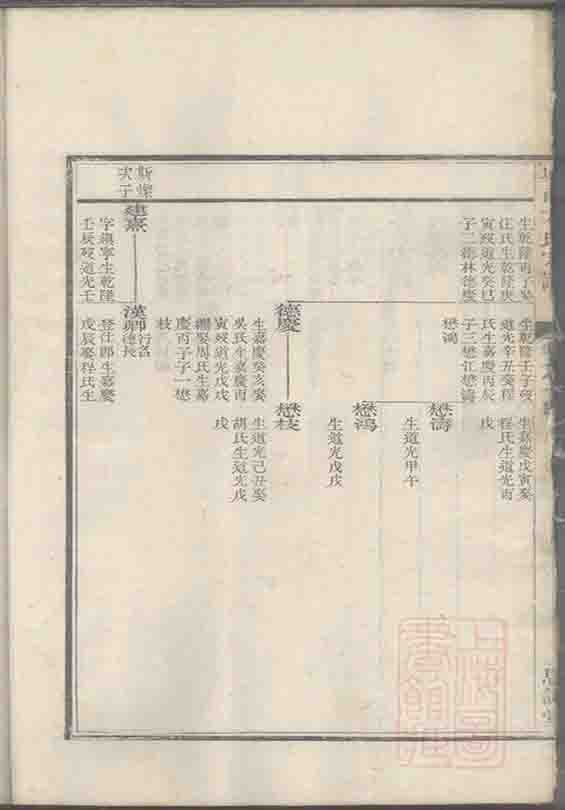 生乾隆丙子娶
汪氏生乾隆庚
寅歿道光癸巳
子二德林德慶
生乾隆壬子歿
道光辛丑娶程
氏生嘉慶丙辰
子三懋江懋濤
懋鴻
生嘉慶戊寅娶
程氏生道光丙
戌
懋濤
生道光甲午
懋鴻
生道光戊戌
德慶
生嘉慶癸亥娶
吳氏生嘉慶丙
寅歿道光戊戌
繼娶周氏生嘉
慶丙子子一懋
枝
懋枝
生道光己丑娶
胡氏生道光戊
戌
次子
建熹
字鎮寧生乾隆
壬辰歿道光壬
漢卿
行名
德長
登仕郎生嘉慶
戊辰娶程氏生
上海圖
書館藏